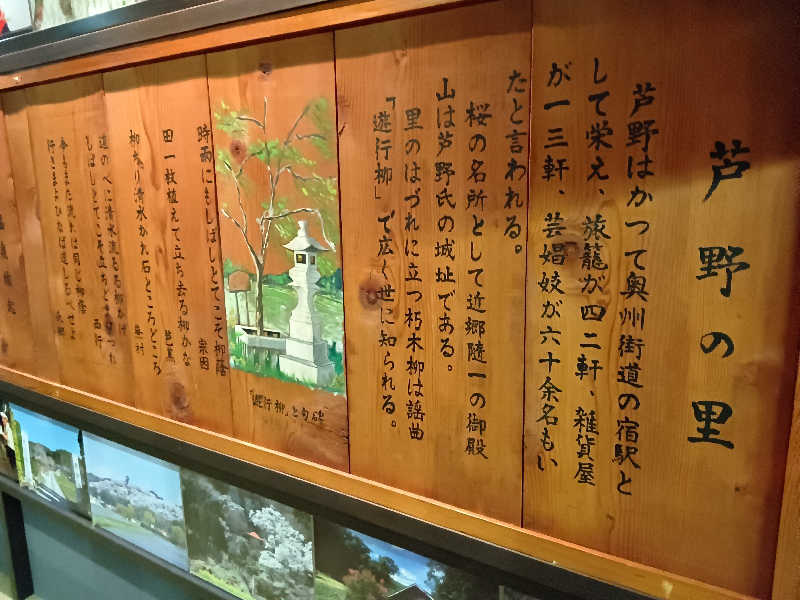 芦野の里
芦野はかつて奥州街道の宿駅と
して栄え、旅籠が四二軒、雑貨屋
が一三軒、芸娼妓が六十余名もい
たと言われる。
桜の名所として近郷随一の御殿
山は芦野氏の城址である。
里のはづれに立つ朽木柳は謡曲
「遊行柳」で広く世に知られる。
「遊行柳」と句碑
時雨にもしばしとてこそ柳蔭
宗因
田一枚植えて立ち去る柳かな
芭蕉
柳ちり清水かれ石ところどころ
蕪村
道のべに清水流るる柳かげ
しばしとてこそ立ちとまりつれ
西行